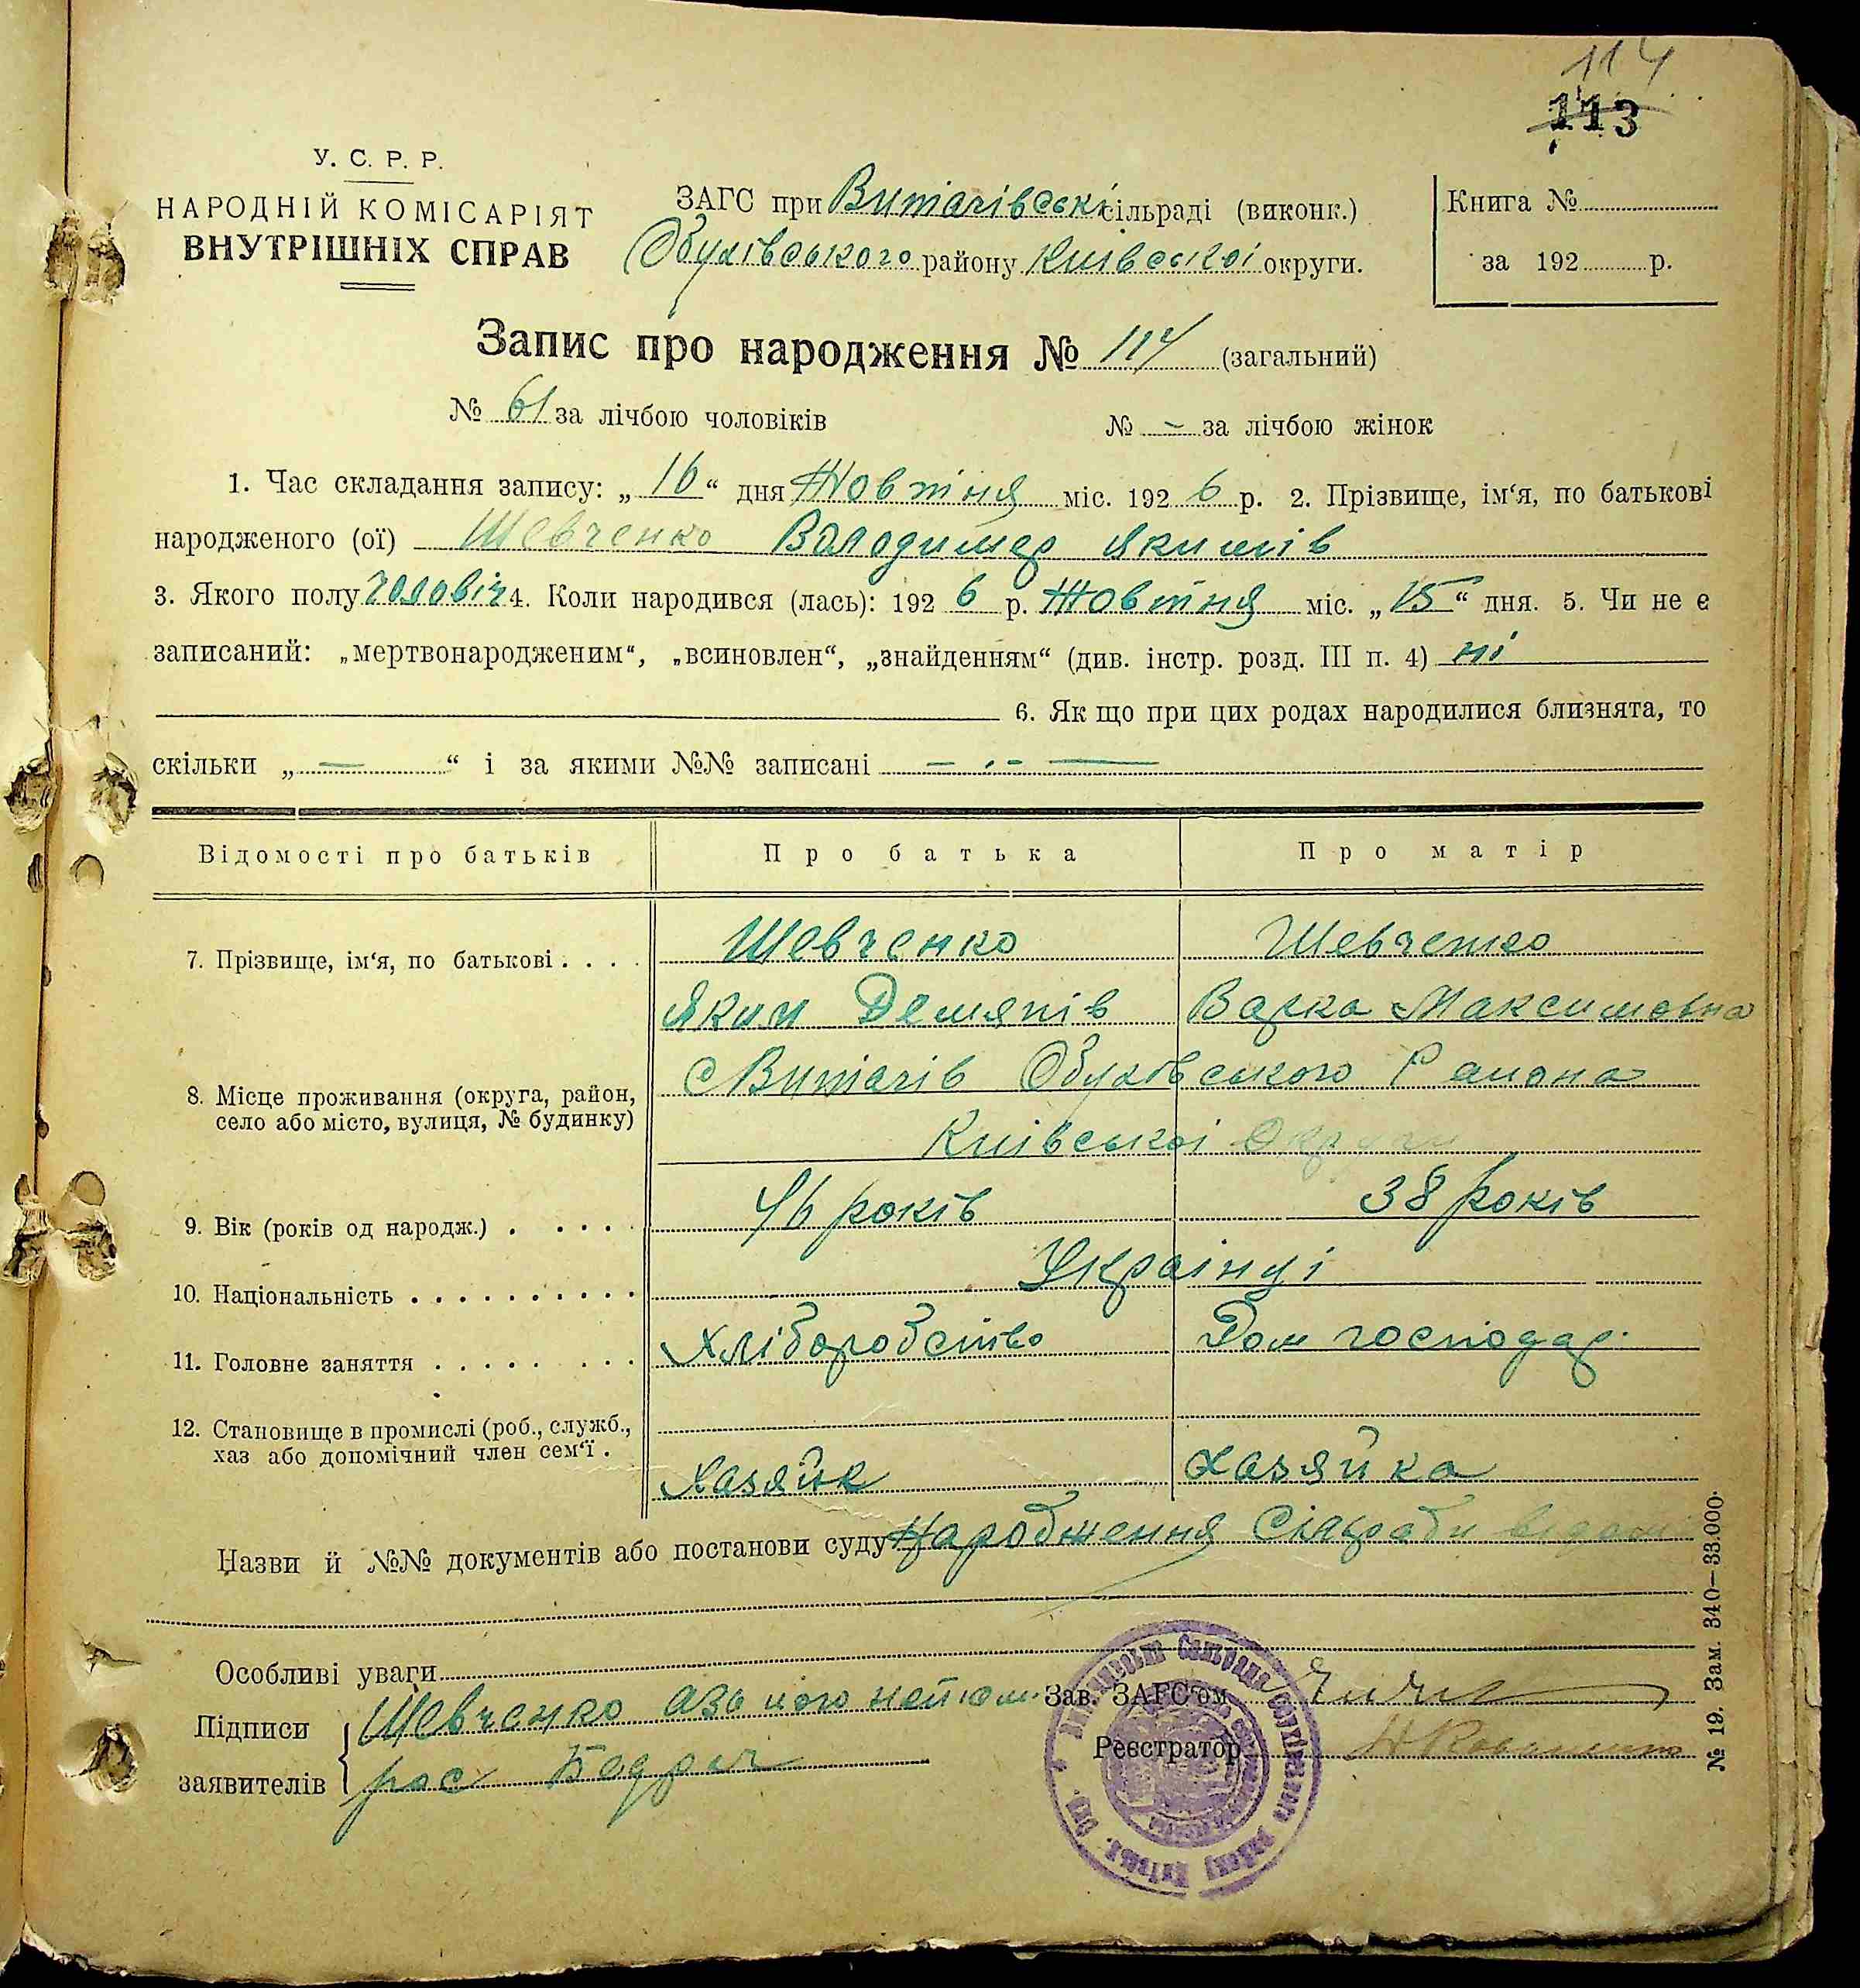 114
113
У. С. Р. Р.
НАРОДНІЙ КОМІСАРІЯТ
ВНУТРІШНІХ СПРАВ
ЗАГС при Витачівські сільраді (виконк.)
Обухівського району Київської округи.
Книга №
за 192 р.
Запис про народження № 114 (загальний)
№ 61 за лічбою чоловіків № – за лічбою жінок
1. Час складання запису: „16“ дня Жовтня міс. 1926 р. 2. Прізвище, ім‘я, по батькові
народженого (ої) Шевченко Володимер Якимів
3. Якого полу чоловіч 4. Коли народився (лась): 1926 р. Жовтня міс. „15“ дня. 5. Чи не є
записаний: „мертвонародженим“, „всиновлен“, „знайденням“ (див. інстр. розд. III п. 4) ні
6. Як що при цих родах народилися близнята, то
скільки „—“ і за якими №№ записані —
Відомості про батьків Про батька Про матір
7. Прізвище, ім‘я, по батькові . . . . Шевченко Шевченко
Яким Демянів Варка Максимовна
8. Місце проживання (округа, район,
село або місто, вулиця, № будинку)
с Витачів Обухівського Района
Київської Округи
9. Вік (років од народж.) . . . . . 46 років 38 років
10. Національність . . . . . . . . . . Українці
11. Головне заняття . . . . . . . . . Хліборобство Дом господар.
12. Становище в промислі (роб., служб.,
хаз або допомічний член сем‘ї .
Хазяїн Хазяйка
Назви й №№ документів або постанови суду Народження Сільради
Особливі уваги
Підписи
заявителів
Шевченко
рос
Зав. ЗАГС‘ом
Реєстратор
№ 19. Зам. 340—33.000.